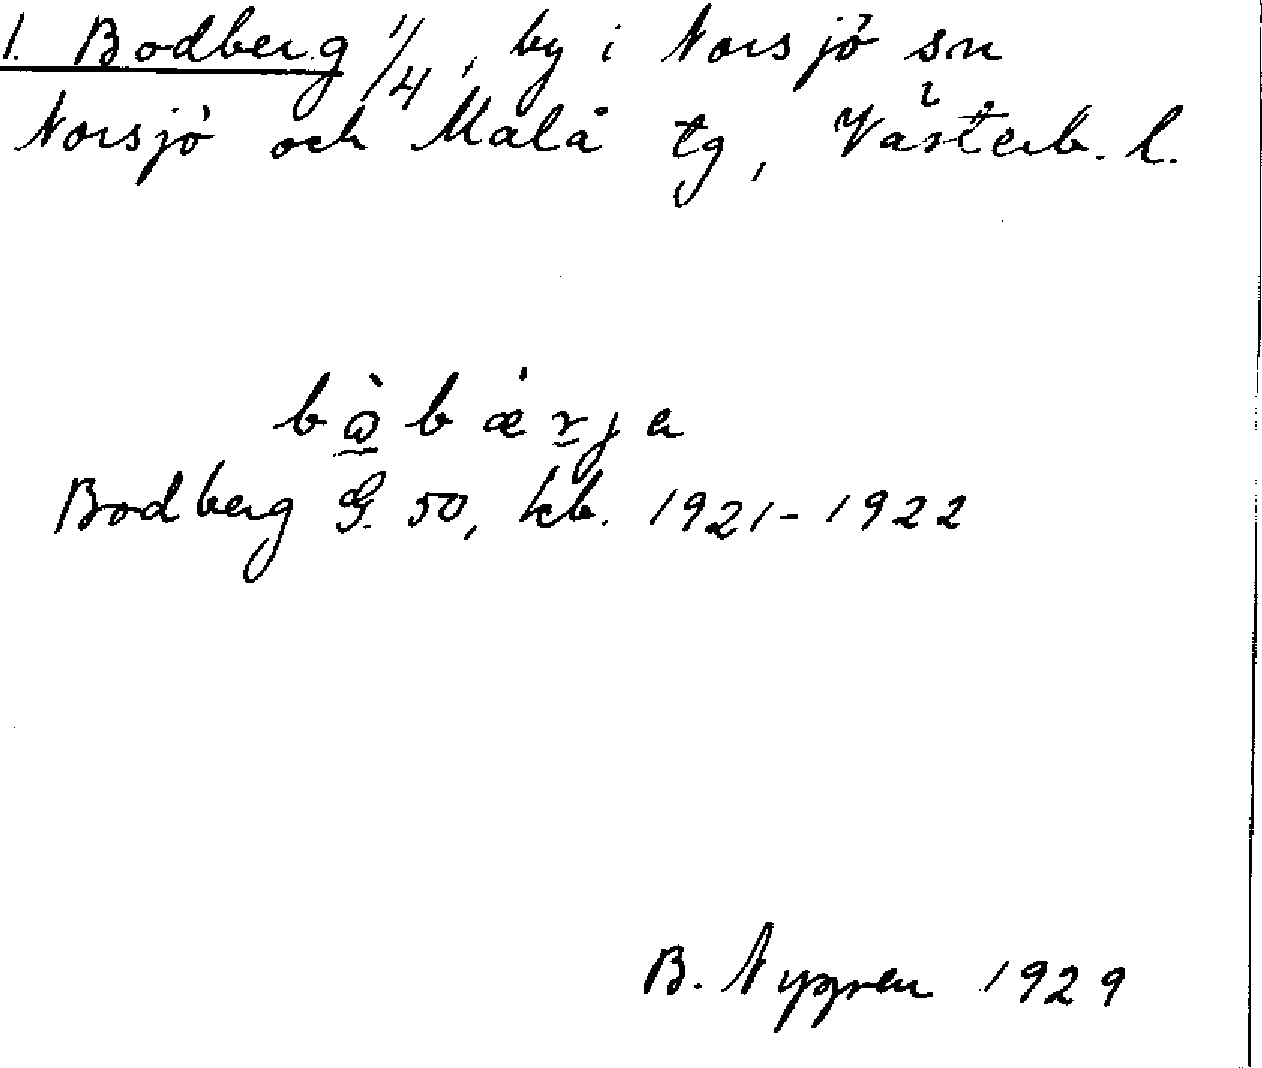 1. Bodberg 1/4, by i Norsjö sn
i
Norsjö och Malå tg, Västerb. l.
bò̲bǽr̲ja
Bodberg G. 50, kb. 1921-1922
B. Nygren 1929